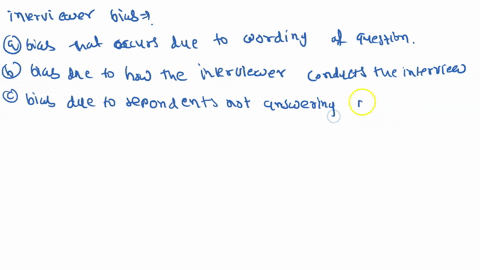 inerviewer bias⇒
(a) bias that occurs due to wording of question.
(b) bias due to how the interviewer conducts the interview
(c) bias due to sepondents not answering